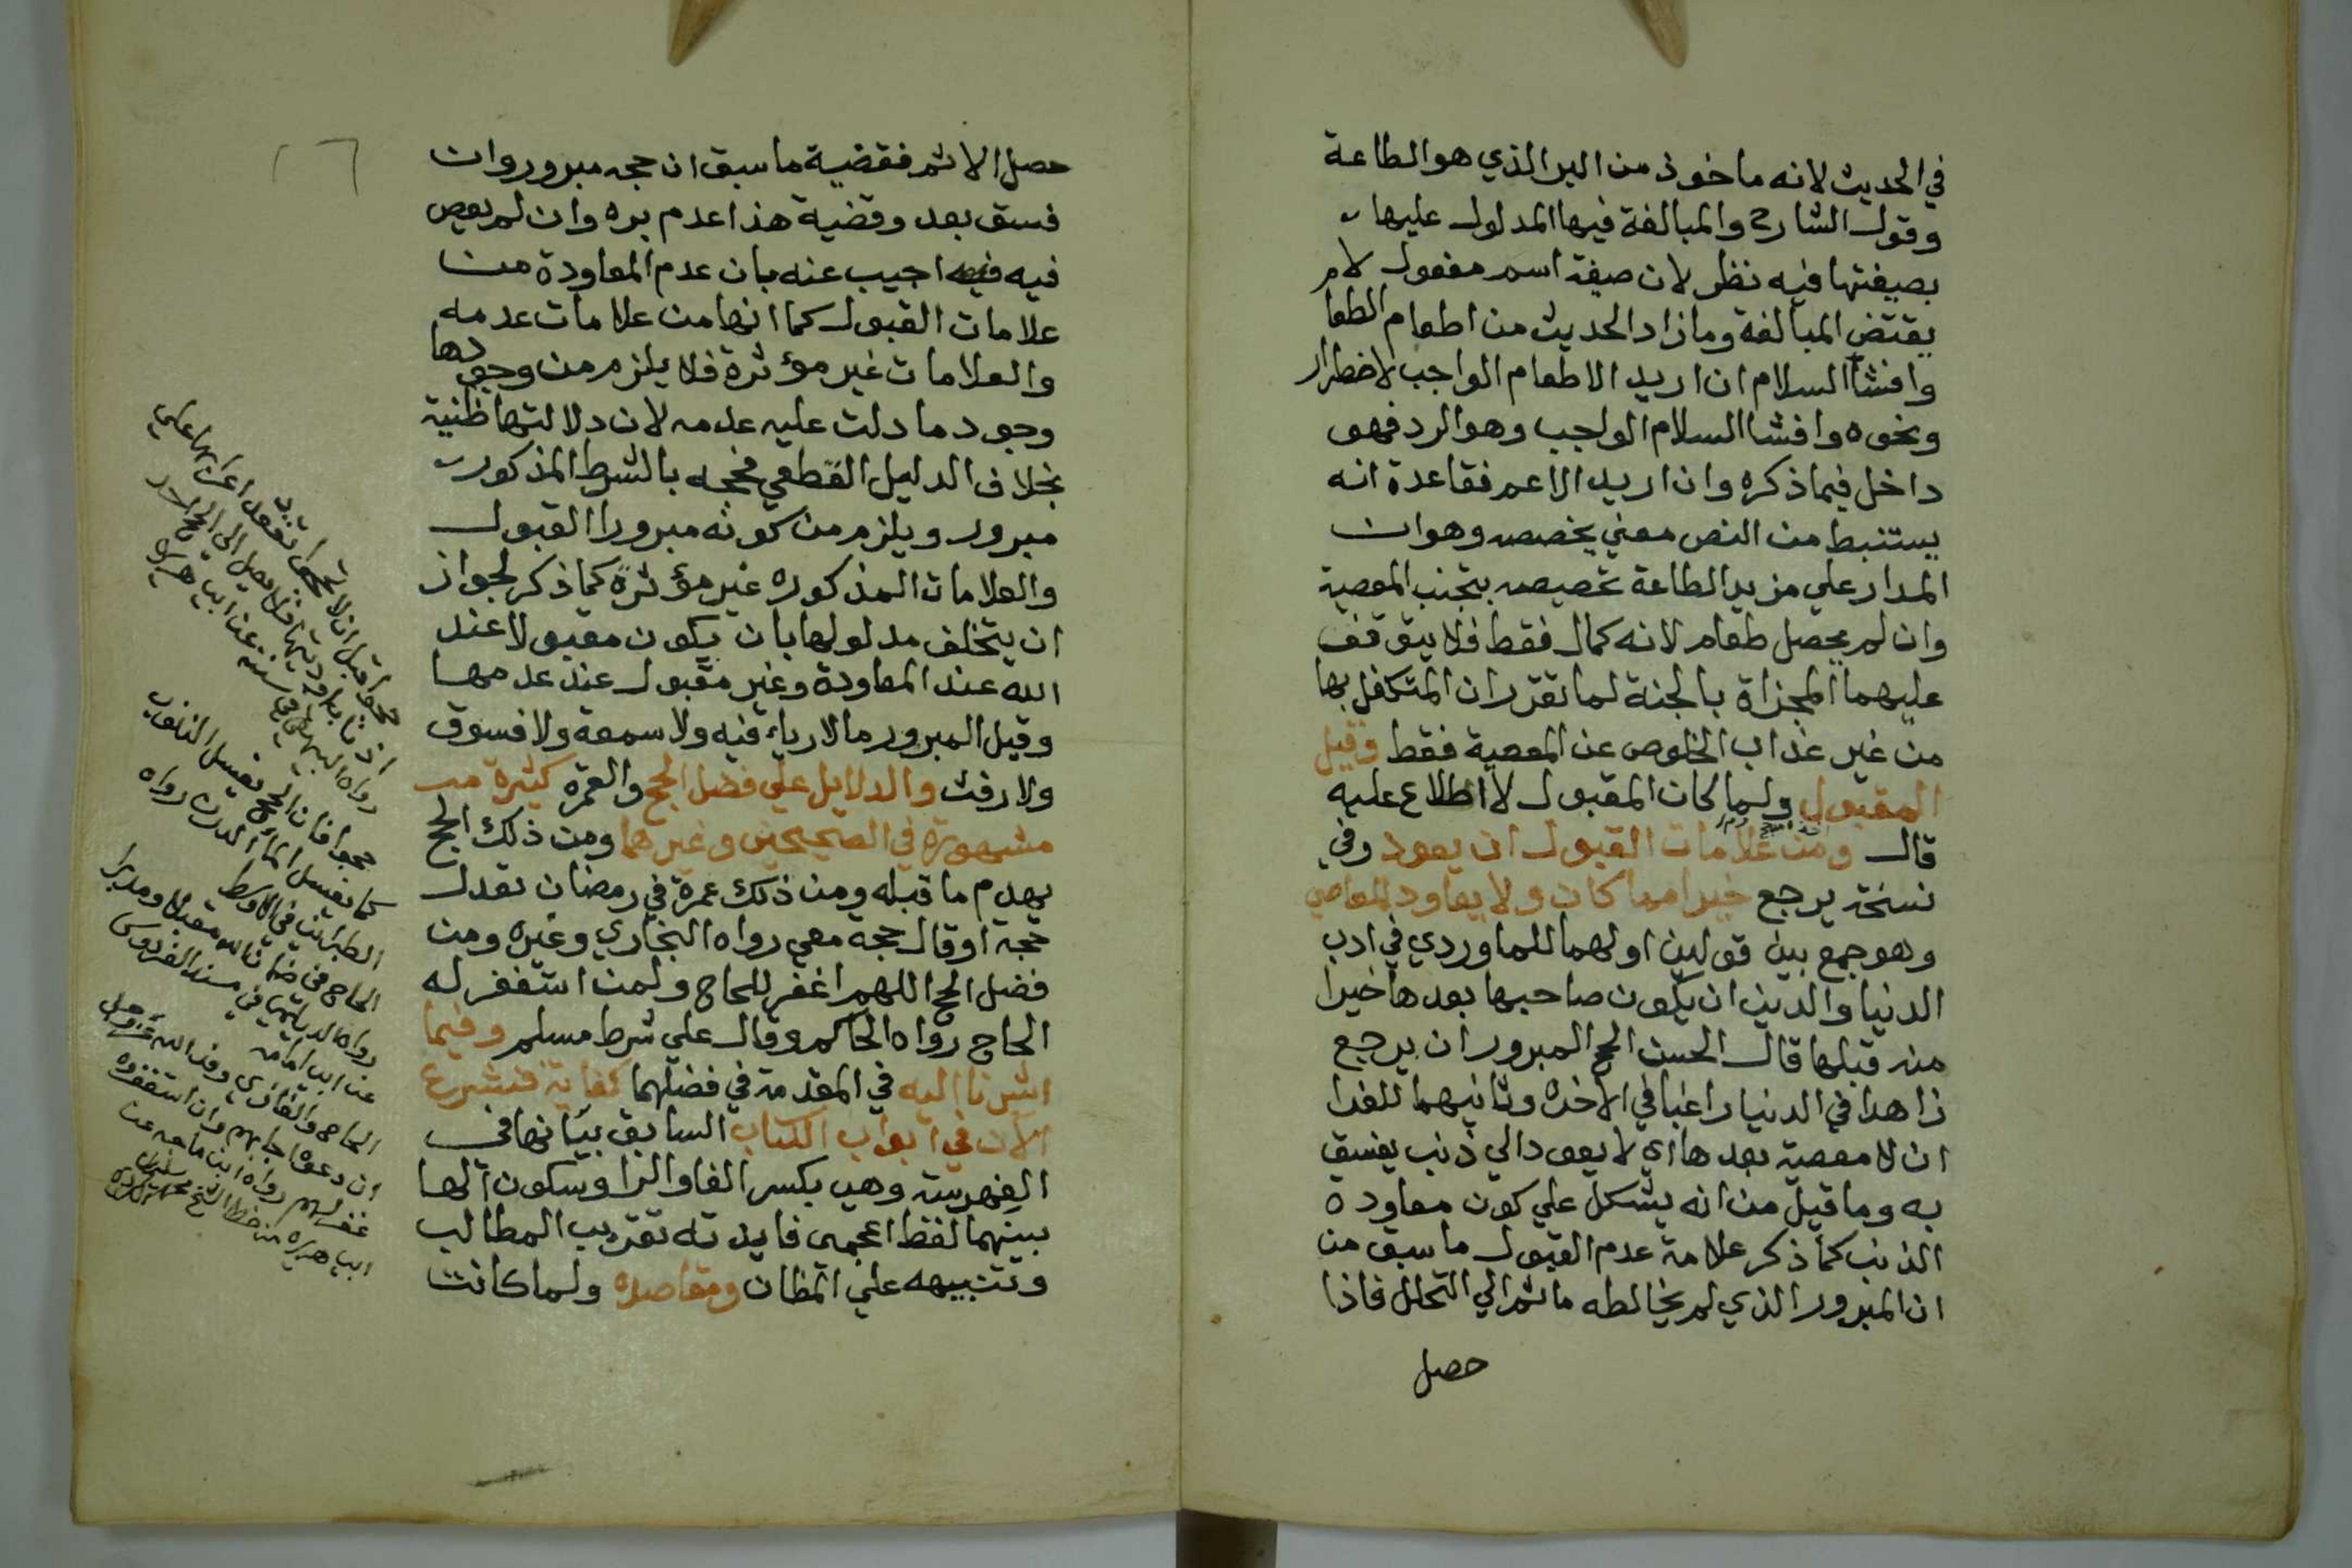 في الحديث لانه ماخوذ من البر الذي هو الطاعة
وقول الشارح والمبالغة فيها المدلول عليها
بصيغتها فيه نظر لان صيغة اسم مفعول لام
يقتض المبالغة وما زاد الحديث من اطعام الطعا
وافشا السلام ان اريد الاطعام الواجب لاضطرار
ونحوه وافشا السلام الواجب وهو الرد فهو
داخل فيما ذكره وان اريد الاعم فقاعدة انه
يستنبط من النص معني يخصصه وهو ان
المدار علي مزيد الطاعة تخصيصه بتجنب المعصية
وان لم يحصل طعام لانه كمال فقط فلا يتوقف
عليهما المجزاة بالجنة لما تقرر ان المتكفل بها
من غير عذاب الخلوص عن المعصية فقط وقيل
المقبول ولما كان المقبول لا اطلاع عليه
قال ومن علامات القبول ان يعود وفي
نسخة يرجع خيرا مما كان ولا يعاود المعاصي
وهو جمع بين قولين اولهما للماوردي في ادب
الدنيا والدين ان يكون صاحبها بعدها خيرا
منه قبلها قال الحسن الحج المبرور ان يرجع
زاهدا في الدنيا راغبا في الاخره وثانيهما للفرا
ان لا معصية بعدها اي لا يعود الي ذنب يفسق
به وما قيل من انه يشكل علي كون معاودة
الذنب كما ذكر علامة عدم القبول ما سبق من
ان المبرور الذي لم يخالطه ماثم الي التحلل فاذا
حصل
حصل الاثم فقضية ما سبق ان حجه مبرور وان
فسق بعد وقضية هذا عدم بره وان لم يعص
فيه اجيب عنه بان عدم المعاودة من
علامات القبول كما انها من علامات عدمه
والعلامات غير مؤثرة فلا يلزم من وجودها
وجود ما دلت عليه عدمه لان دلالتها ظنية
بخلاف الدليل القطعي فحجه بالشرط المذكور
مبرور ويلزم من كونه مبرورا القبول
والعلامات المذكوره غير مؤثرة كما ذكر لجواز
ان يتخلف مدلولها بان يكون مقبولا عند
الله عند المعاودة وغير مقبول عند عدمها
وقيل المبرور مالا رياء فيه ولا سمعة ولا فسوق
ولا رفث والدلايل علي فضل الحج والعمرة كثيرة
مشهورة في الصحيحين وغيرهما ومن ذلك الحج
يهدم ما قبله ومن ذلك عمرة في رمضان تعدل
حجة او قال حجة معي رواه البخاري وغيره ومن
فضل الحج اللهم اغفر للحاج ولمن استغفر له
الحاج رواه الحاكم وقال علي شرط مسلم وفيما
اشرنا اليه في المقدمة في فضلهما كفاية فنشرع
الآن في ابواب الكتاب السابق بيانها في
الفهرسة وهي بكسر الفا والرا وسكون الها
بينهما لفظ اعجمي فايدته تقريب المطالب
وتنبيهه علي المظان ومقاصده ولما كانت
حجوا قبل ان لا تحجوا تقعد اعرابها علي
اذناب اوديتها فلا يصل الى الحج احد
رواه البيهقي في سننه عن ابي هريرة
حجوا فان الحج يغسل الذنوب
كما يغسل الماء الدرن رواه
الطبراني في الاوسط
الحاج في ضمان الله مقبلا ومدبرا
رواه الديلمي في مسند الفردوس
عن ابي امامه
الحاج والغازي وفد الله عز وجل
ان دعوه اجابهم وان استغفروه
غفر لهم رواه ابن ماجه عن
ابي هريرة من خط الشيخ محمد